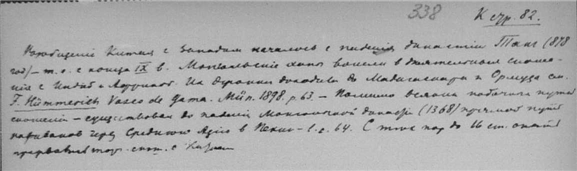 338
К стр. 82.
Разобщение Китая с Западом началось с падения династии Танг (878
год) – т.е. с конца IX в. Монгольские ханы вошли в деятельные сноше-
ния с Индией и Африкой. Их джонки доходили до Мадагаскара и Ормуза см.
F. Hümmerich Vasco da Gama. Münch. 1898. p. 63. – Помимо всяких побочных путей
сношений – существовал до падения Монгольской династии (1368) прямой путь
караванов через Среднюю Азию в Пекин – l. c. 64. С тех пор до 16 ст. опять
прерваны сношения с Китаем